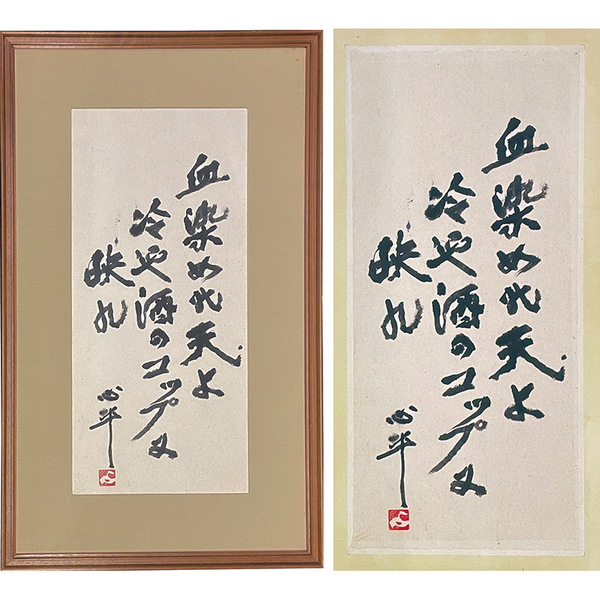 血染めの天よ
冷や酒のコップに
映れ
心平
血染めの天よ
冷や酒のコップに
映れ
心平